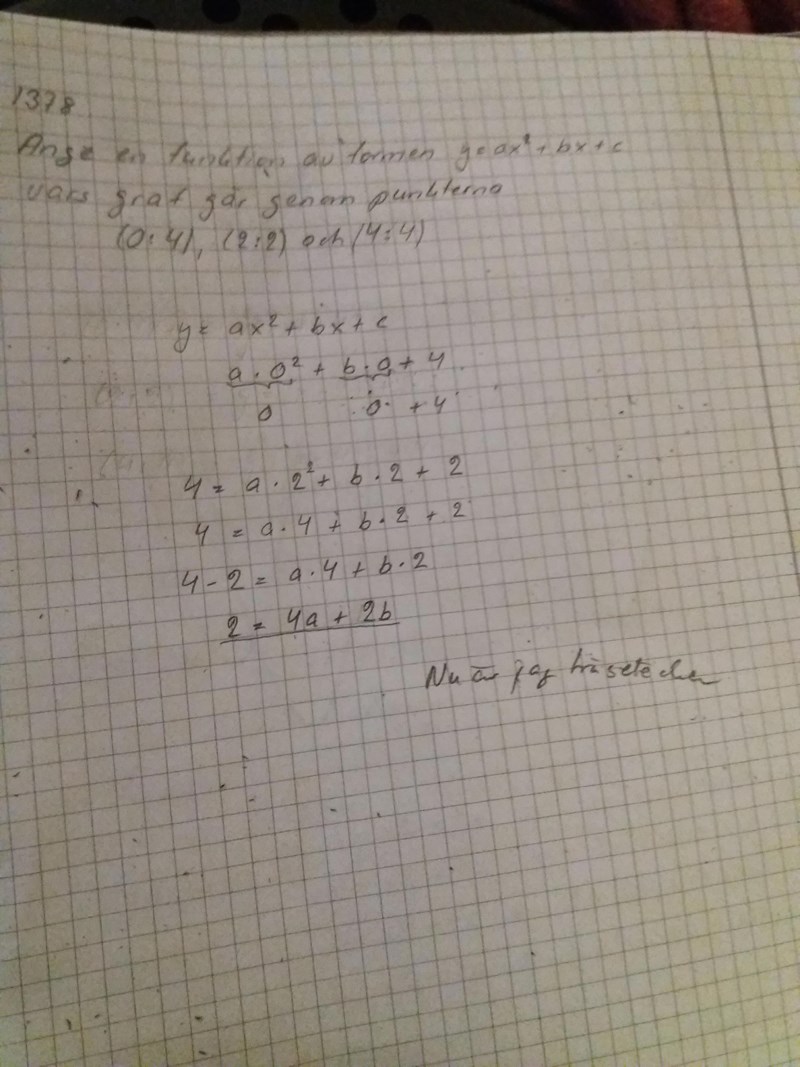 1378
Ange en funktion av formen y=ax²+bx+c
vars graf går genom punkterna
(0:4), (2:2) och (4:4)
y= ax²+ bx+c
a·0² + b·0+ 4
0 0 +4
4= a·2²+ b·2+ 2
4 = a·4 + b·2 + 2
4-2= a·4+b·2
2 = 4a + 2b
Nu är jag